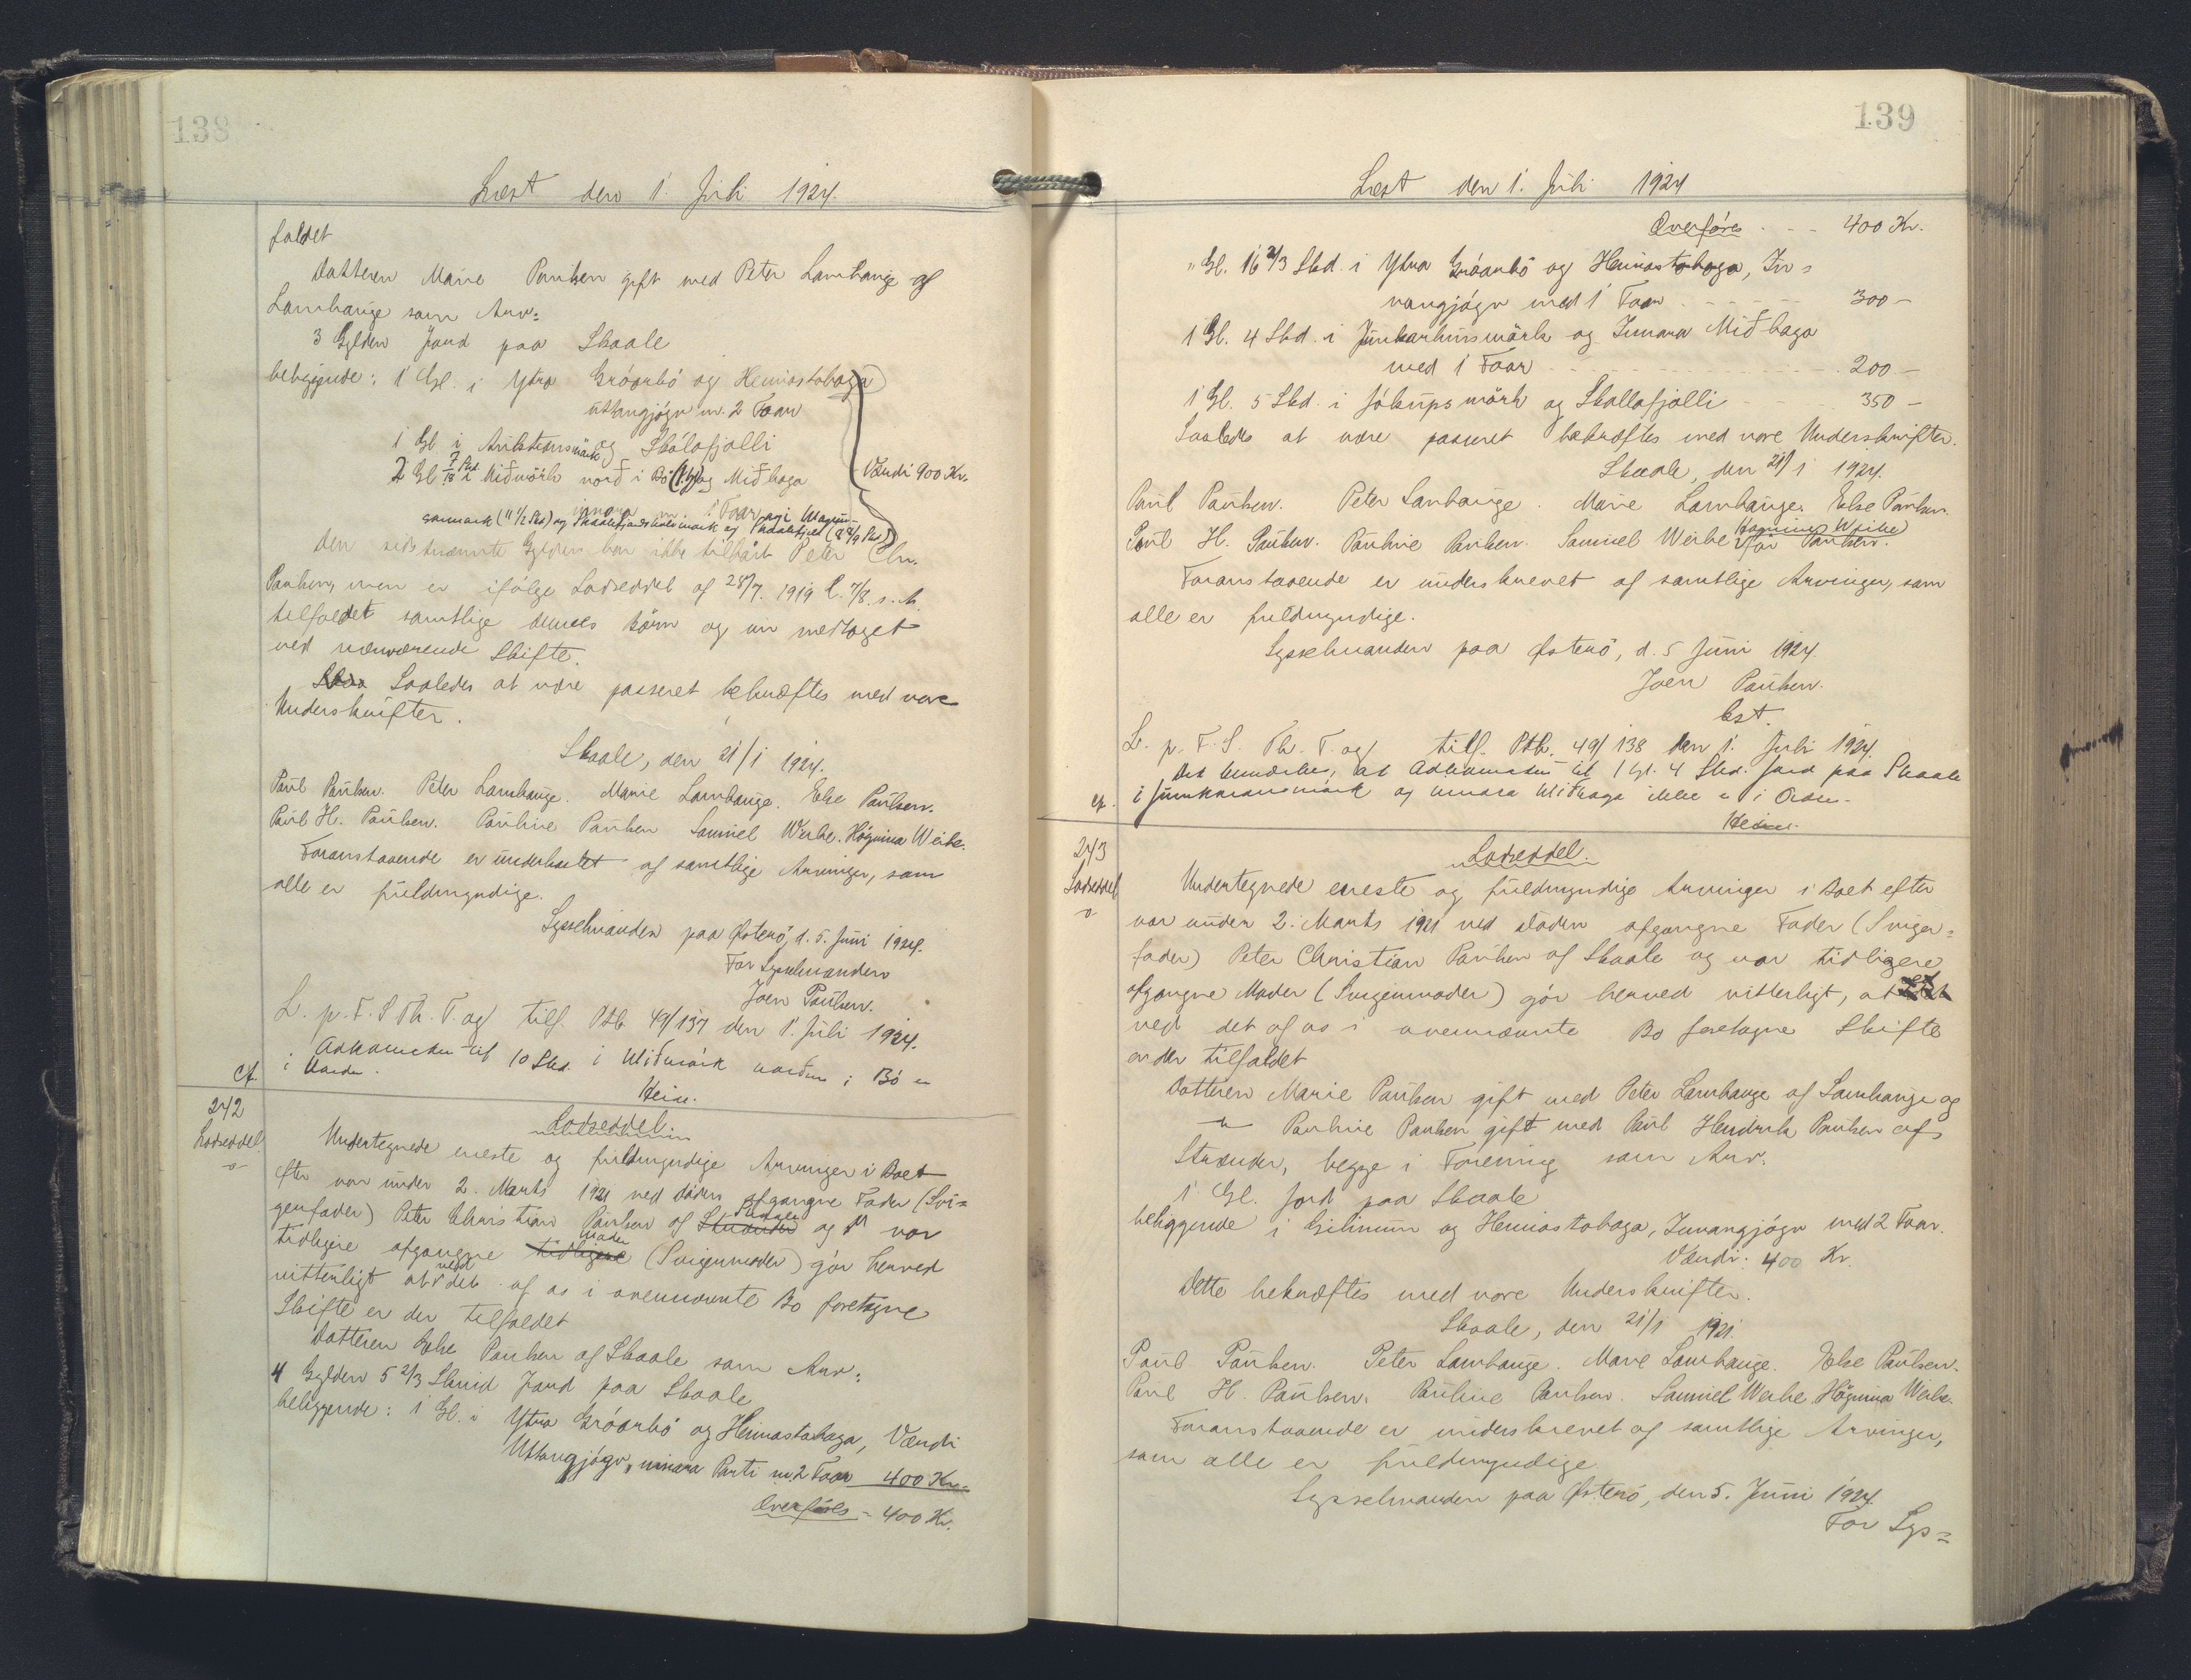 138
Læst den 1. Juli 1924.
faldet
Datteren Marie Paulsen gift med Peter Lambauge af
Lambauge som Arv:
3 Gylden Jord paa Skaale
beliggende: 1 Gl. i Ytra Gróarbö og Heimastahaga
uttangjógv m. 2 Faar
1 Gl i mörk og Skálafjalli
2 Gl Miðmörk norð i Bö (1 Gl) og Miðhaga
Værdi 900 Kr.
innara m. 1 Faar og i
sanmørk (11 1/2 Skd) og mørk og Skaalefjeld (8 8/9 Skd)
den sidstnævnte Gylden har ikke tilhørt Peter Chr.
Paulsen, men er ifølge Lodseddel af 28/7. 1919 l. 7/8. s. A.
tilfaldet samtlige dennes Börn og er medtaget
ved nærværende Skifte.
Saaledes at være passeret bekræftes med vore
Underskrifter.
Skaale, den 21/1 1924.
Paul Paulsen. Peter Lambauge. Marie Lambauge. Else Paulsen.
Paul H. Paulsen. Pauline Paulsen Samuel Weihe. Högnina Weihe.
Foranstaaende er underskrevet af samtlige Arvinger, som
alle er fuldmyndige.
Sysselmanden paa Østerö, d. 5. Juni 1924.
For Sysselmanden
Joen Paulsen.
L. p. F. S. Th. T. og tilf. Ptb. 49/137 den 1. Juli 1924.
Adkomsten til 10 Skd. i Miðmörk norðuri i Bö er
cf. i Orden.
Heise.
242
Lodseddel
Lodseddel.
Undertegnede eneste og fuldmyndige Arvinger i Boet
efter vor under 2. Marts 1921 ved døden afgangne Fader (Svi=
gerfader) Peter Christian Paulsen af Strænder og vor
tidligere afgangne tidligere Moder (Svigermoder) gör herved
vitterligt at ved det af os i ovennævnte Bo foretagne
Skifte er der tilfaldet
Datteren Else Paulsen af Skaale som Arv:
4 Gylden 5 2/3 Skind Jord paa Skaale
beliggende: 1 Gl. i Ytra Gróarbö og Heimastahaga, Værdi
Uttangjógv, innara Parti m. 2 Faar 400 Kr.
Overføres - 400 Kr.
139
Læst den 1. Juli 1924
Overføres - - - 400 Kr.
" Gl. 16 2/3 Skd. i Ytra Gróarbö og Heimastahaga, In=
nangjógv med 1 Faar - - - 300 -
1 Gl. 4 Skd. i Junkarhúsmörk og Innara Miðhaga
med 1 Faar - - - 200 -
1 Gl. 5 Skd. i Jákupsmörk og Skallafjalli - - 350 -
Saaledes at være passeret bekræftes med vore Underskrifter.
Skaale, den 21/1 1924.
Paul Paulsen. Peter Lambauge. Marie Lambauge. Else Paulsen.
Paul H. Paulsen. Pauline Paulsen. Samuel Weihe Högnina Weihe
Foranstaaende er underskrevet af samtlige Arvinger, som
alle er fuldmyndige.
Sysselmanden paa Østerö, d. 5 Juni 1924.
Joen Paulsen.
kst.
L. p. F. S. Th. T. og tilf. Ptb. 49/138 den 1. Juli 1924.
Det bemærkes, at Adkomsten til 1 Gl. 4 Skd. Jord paa Skaale
cf. i Junkaransmørk og innara Miðhaga ikke er i Orden.
Heise.
243
Lodseddel
Lodseddel.
Undertegnede eneste og fuldmyndige Arvinger i Boet efter
vor under 2. Marts 1921 ved døden afgangne Fader (Sviger=
fader) Peter Christian Paulsen af Skaale og vor tidligere
afgangne Moder (Svigermoder) gör herved vitterligt, at
ved det af os i ovennævnte Bo foretagne Skifte
er der tilfaldet
Datteren Marie Paulsen gift med Peter Lambauge af Lambauge og
" Pauline Paulsen gift med Paul Hendrik Paulsen af
Strænder, begge i Forening som Arv.
1 Gl. Jord paa Skaale
beliggende i Gilinum og Heimastahaga, Innangjógv med 2 Faar.
Værdi: 400 Kr.
Dette bekræftes med vore Underskrifter.
Skaale, den 21/1 1921.
Paul Paulsen. Peter Lambauge. Marie Lambauge. Else Paulsen.
Paul H. Paulsen. Pauline Paulsen. Samuel Weihe Högnina Weihe.
Foranstaaende er underskrevet af samtlige Arvinger,
som alle er fuldmyndige.
Sysselmanden paa Østerö, den 5. Juni 1924.
For Sys=